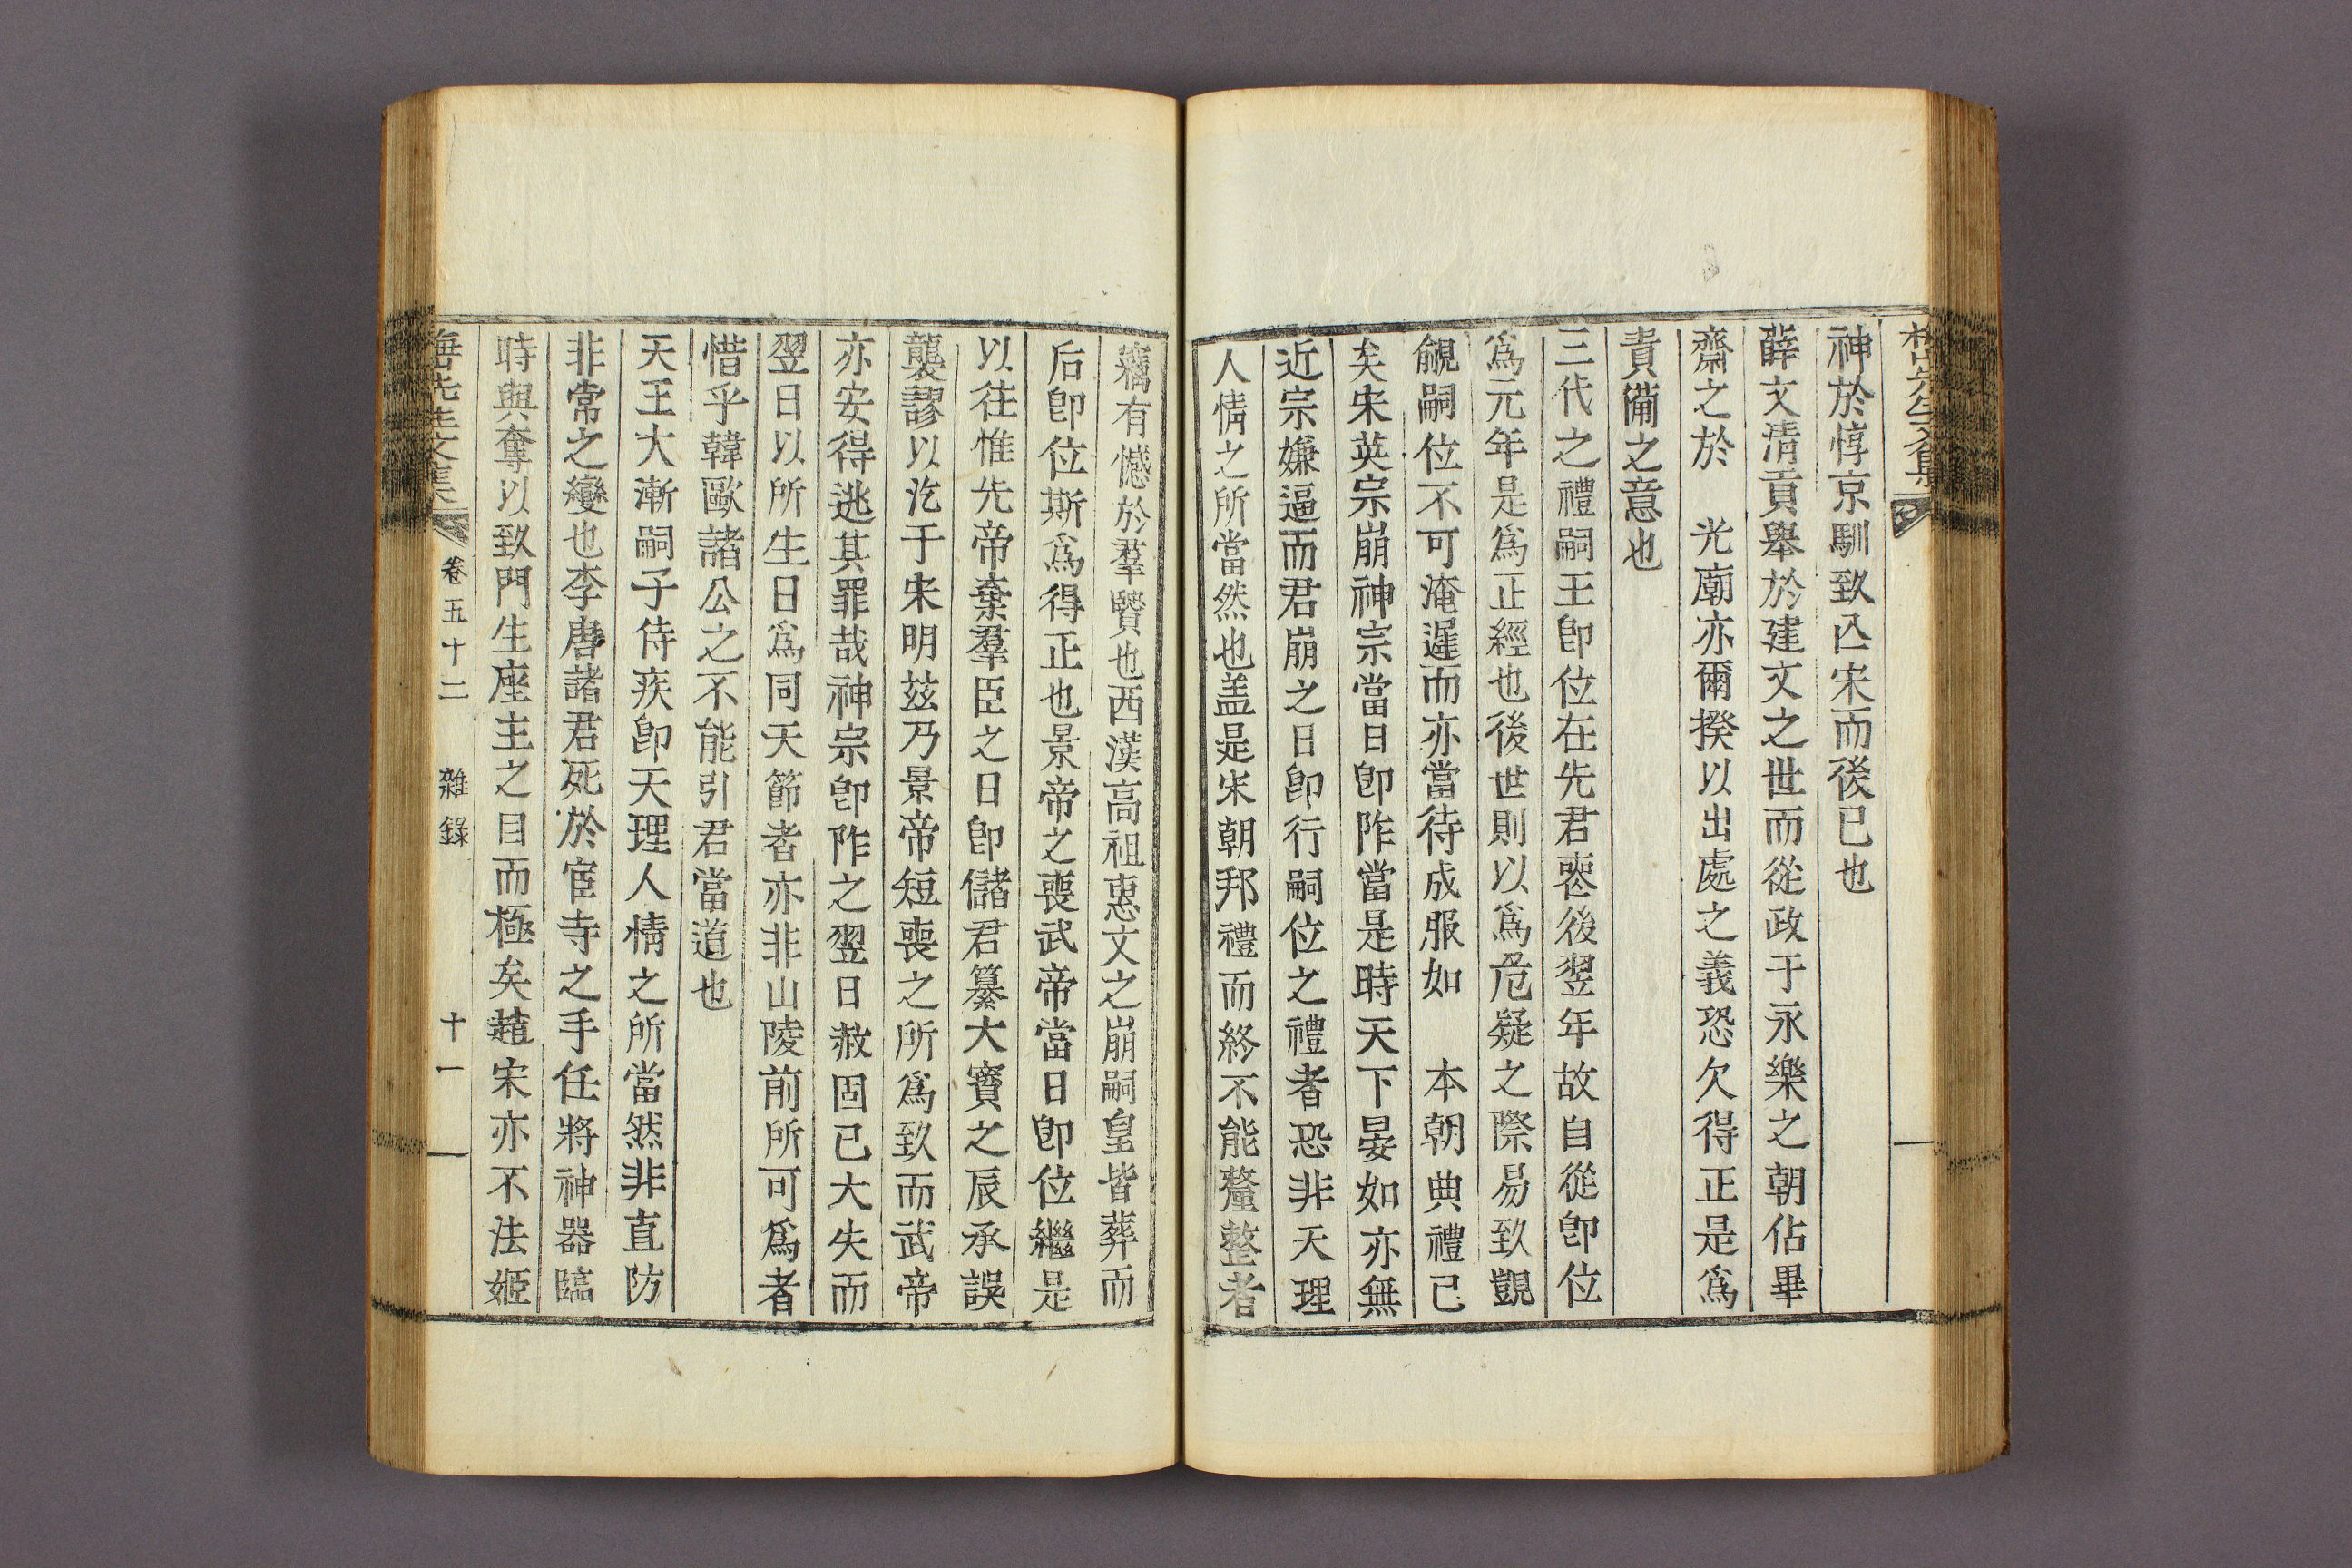 神於惇京馴致亾宋而後已也
薛文清貢舉於建文之世而從政于永樂之朝佔畢
齋之於　光廟亦爾揆以出處之義恐欠得正是爲
責備之意也
三代之禮嗣王卽位在先君薨後翌年故自從卽位
爲元年是爲正經也後世則以爲危疑之際易致覬
覦嗣位不可淹遲而亦當待成服如　本朝典禮已
矣宋英宗崩神宗當日卽阼當是時天下晏如亦無
近宗嫌逼而君崩之日卽行嗣位之禮者恐非天理
人情之所當然也盖是宋朝邦禮而終不能釐整者
竊有憾於羣賢也西漢高祖惠文之崩嗣皇皆葬而
后卽位斯爲得正也景帝之喪武帝當日卽位繼是
以往惟先帝棄羣臣之日卽儲君纂大寶之辰承誤
襲謬以汔于宋明玆乃景帝短喪之所爲致而武帝
亦安得逃其罪哉神宗卽阼之翌日赦固已大失而
翌日以所生日爲同天節者亦非山陵前所可爲者
惜乎韓歐諸公之不能引君當道也
天王大漸嗣子侍疾卽天理人情之所當然非直防
非常之變也李唐諸君死於宦寺之手任將神器臨
時與奪以致門生座主之目而極矣趙宋亦不法姬
先生文集　卷五十二　雜錄　十一